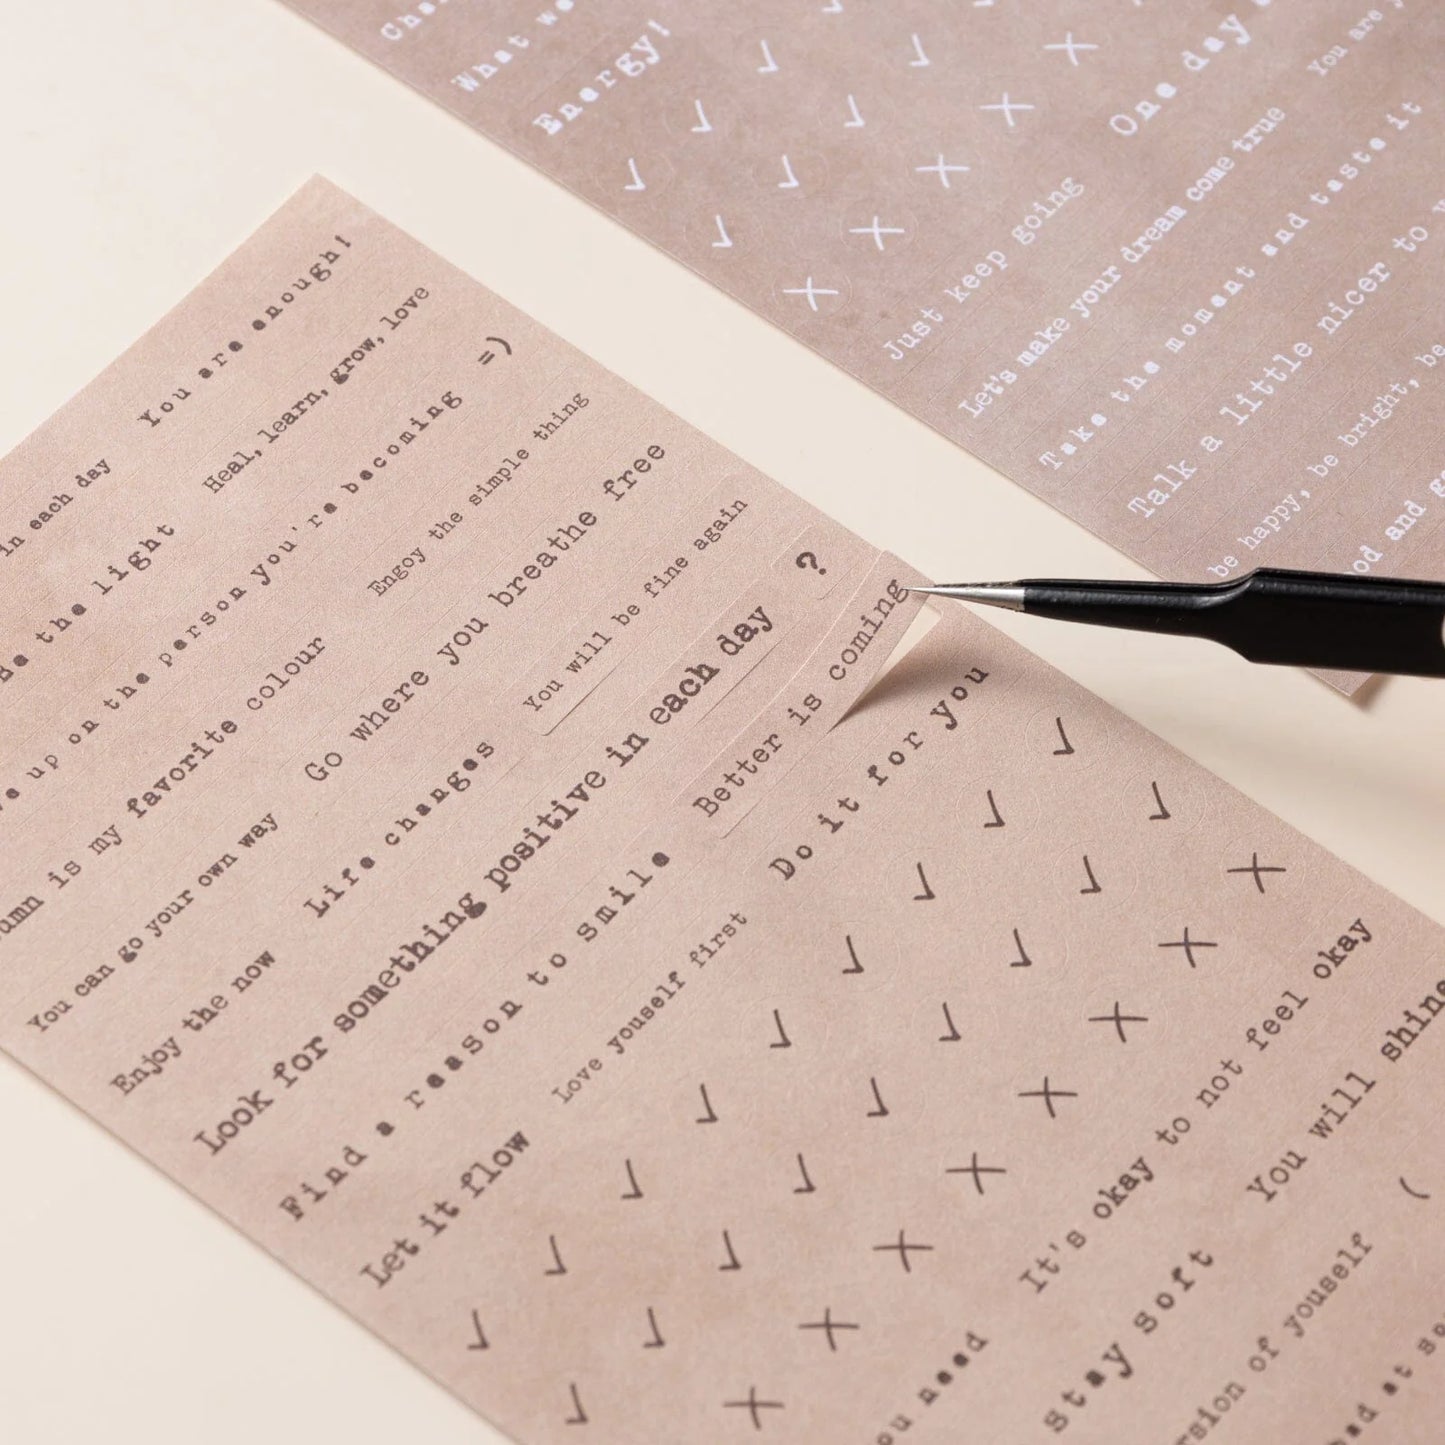 You are enough!
in each day
Heal, learn, grow, love
Be the light
=)
up on the person you're becoming
Engoy the simple thing
is my favorite colour
Go where you breathe free
You can go your own way
You will be fine again
Enjoy the now
Life changes
?
Look for something positive in each day
Better is coming
Find a reason to smile
Do it for you
Let it flow
Love youself first
It's okay to not feel okay
You will shine
need
Stay soft
(
of youself
at
What
Energy!
One day
You are
Just keep going
Let's make your dream come true
Take the moment and taste it
Talk a little nicer to
be happy, be bright, be
and